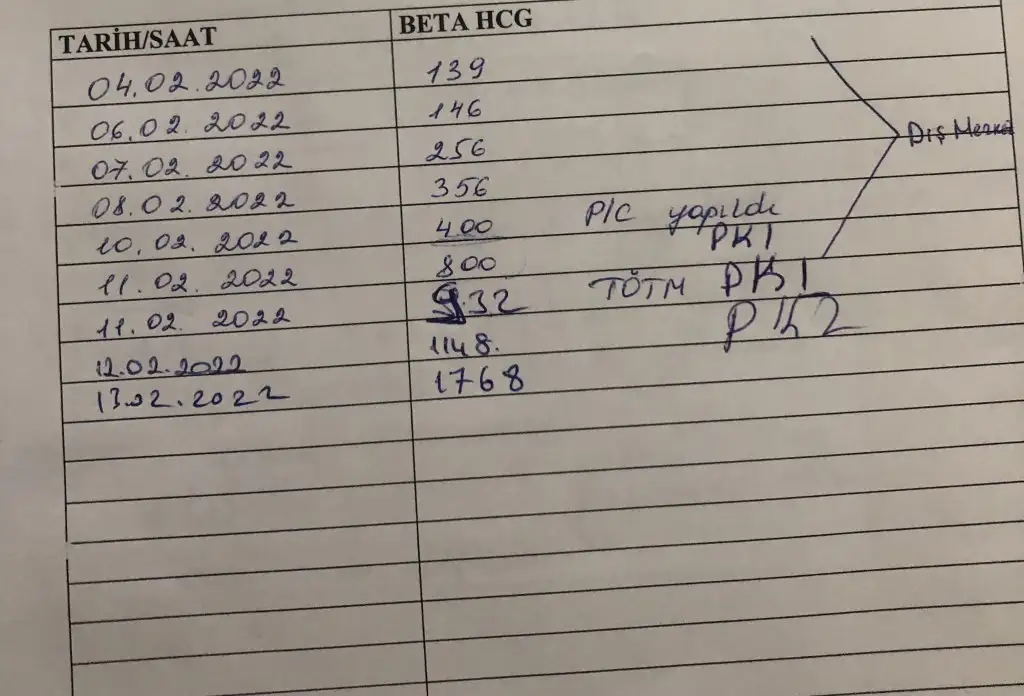 TARİH/SAAT BETA HCG
04.02.2022 139
06.02.2022 146
07.02.2022 256 Dış Merkez
08.02.2022 356
10.02.2022 400 P/C yapıldı
PK1
11.02.2022 800
11.02.2022 932 TÖTM PK1
12.02.2022 1148. PK2
13.02.2022 1768